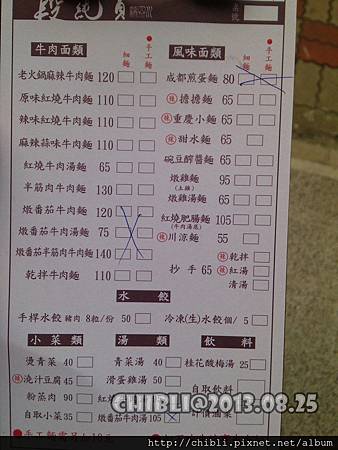 段純貞
牛肉麵類 細麵 ●手工麵
老火鍋麻辣牛肉麵 120
原味紅燒牛肉麵 110
辣味紅燒牛肉麵 110
麻辣蒜味牛肉麵 110
紅燒牛肉湯麵 65
半筋牛肉麵 130
燉番茄牛肉麵 120
燉番茄牛肉湯麵 75
燉番茄半筋牛肉麵 140
乾拌牛肉麵 110
風味麵類 細麵 ●手工麵
成都煎蛋麵 80
辣 擔擔麵 65
辣 重慶小麵 65
辣 甜水麵 65
碗豆醡醬麵 65
燉雞麵 95
(土雞)
燉雞湯麵 65
紅燒肥腸麵 105
(牛肉湯底)
辣 川涼麵 55
抄手 65
辣 乾拌
辣 紅湯
清湯
水餃
手桿水餃 豬肉 8粒/份 50
冷凍(生)水餃 個/ 5
小菜類
燙青菜 40
辣 澆汁豆腐 45
粉蒸肉 90
自取小菜 35
湯類
青菜湯 40
滑蛋雞湯 50
燉番茄牛肉湯 105
飲料
桂花酸梅湯 25
自取飲料
CHIBLI@2013.08.25
http://chibli.pixnet.net/album